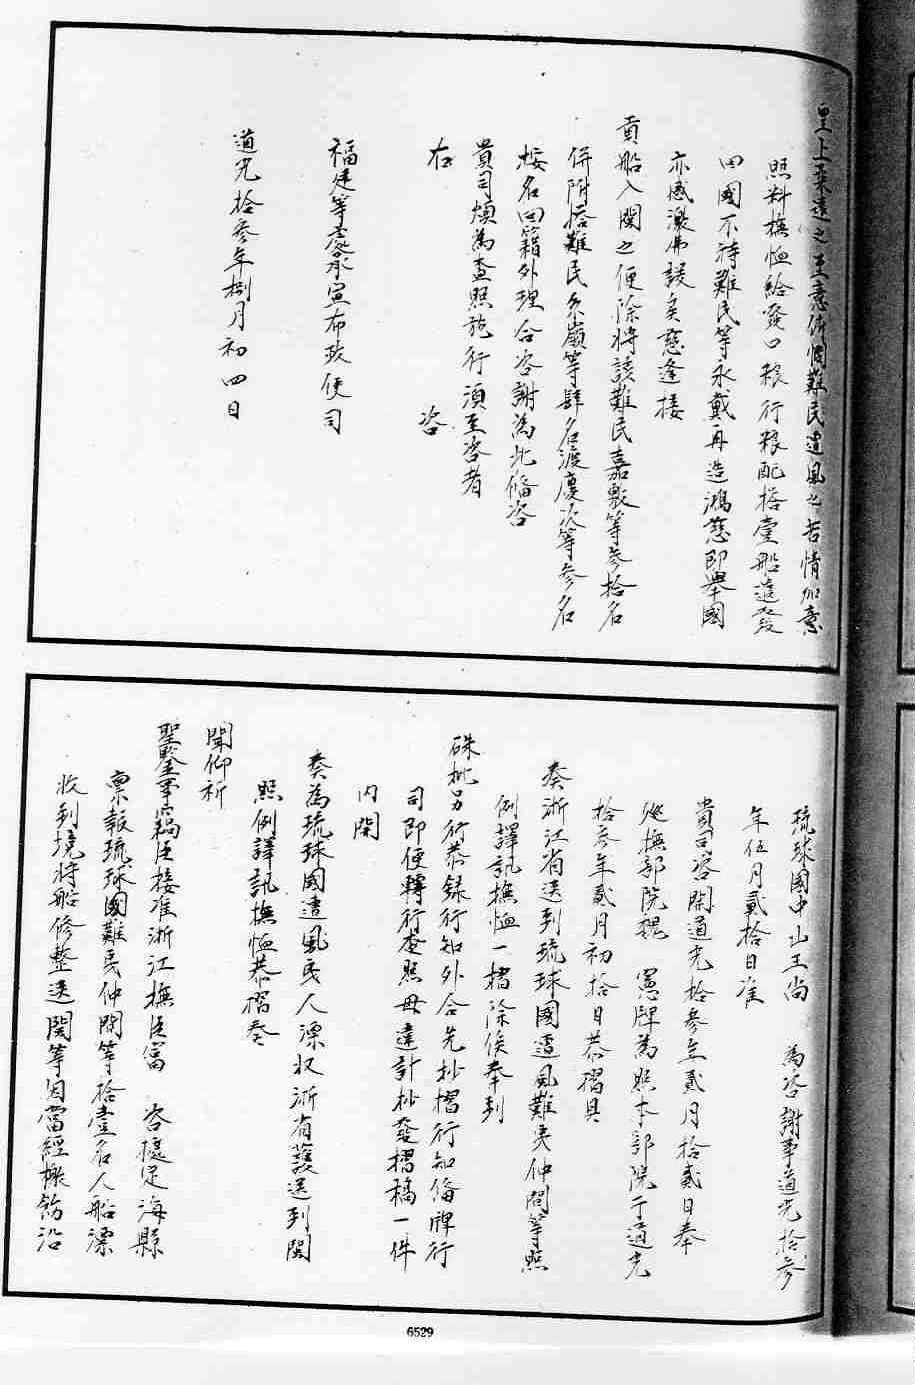 皇上柔遠之至意俯憫難民遭風之苦情加意
照料撫恤給發口粮行粮配搭壹船遣發
回國不特難民等永戴再造鴻慈即舉國
亦感激弗諼矣茲逢接
貢船入閩之便除將該難民嘉敷等參拾名
併附搭難民多嶺等肆名渡慶次等參名
按名回籍外理合咨謝為此備咨
貴司煩為查照施行須至咨者
右 咨
福建等處承宣布政使司
道光拾參年捌月初四日
琉球國中山王尚 為咨謝事道光拾參
年伍月貳拾日准
貴司咨開道光拾參年貳月拾貳日奉
巡撫部院魏 憲牌為照本部院于道光
拾參年貳月初拾日恭摺具
奏浙江省送到琉球國遭風難夷仲間等照
例譯訊撫恤一摺除俟奉到
硃批另行恭錄行知外合先抄摺行知備牌行
司即便轉行查照毋違計抄發摺稿一件
內開
奏為琉球國遭風夷人漂收浙省護送到閩
照例譯訊撫恤恭摺奏
聞仰祈
聖鑒事竊臣接准浙江撫臣富 咨據定海縣
稟報琉球國難夷仲間等拾壹名人船漂
收到境將船修整送閩等因當經檄飭沿
6529